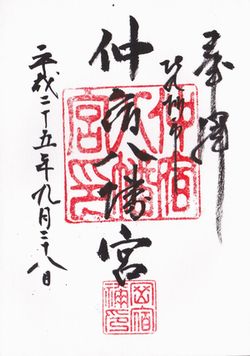 奉拝
仲宿八幡宮
仲宿八幡宮印
平成二十五年九月二十八日